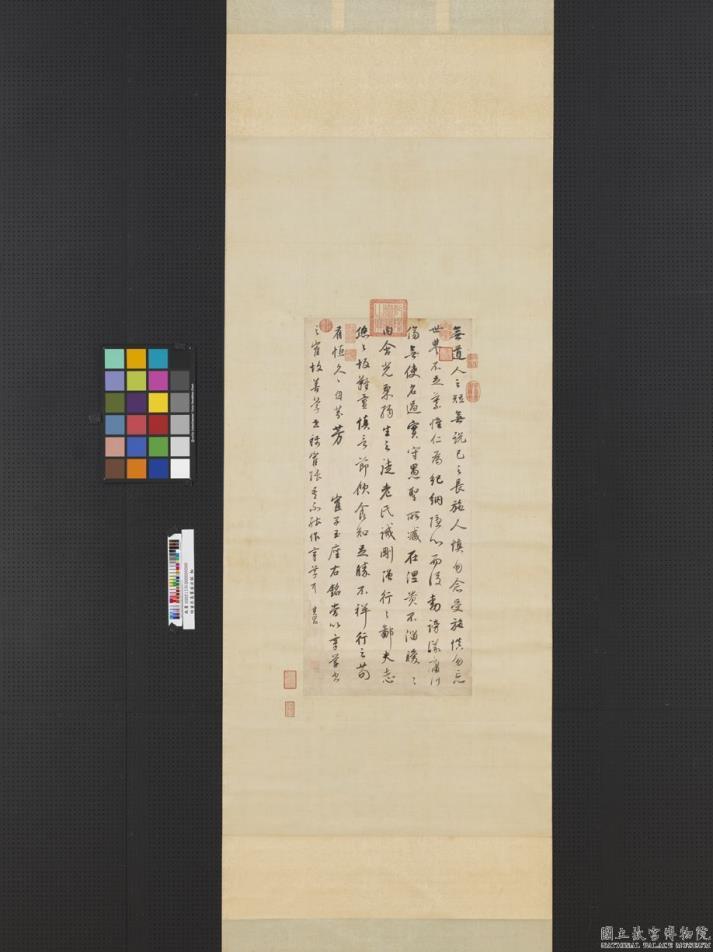 無道人之短無說己之長施人慎勿念受施慎勿忘
世譽不足慕惟仁為紀綱隱心而後動謗議庸何
傷無使名過實守愚聖所臧在涅貴不淄曖〻
内含光柔弱生之徒老氏誡剛強行〻鄙夫志
悠〻故難量慎言節飲食知足勝不祥行之苟
有恒久〻自芬芳 崔子玉座右銘嘗以章草書
之崔故善草書 不能作章草耳 其昌
國立故宮博物院
NATIONAL PALACE MUSEUM